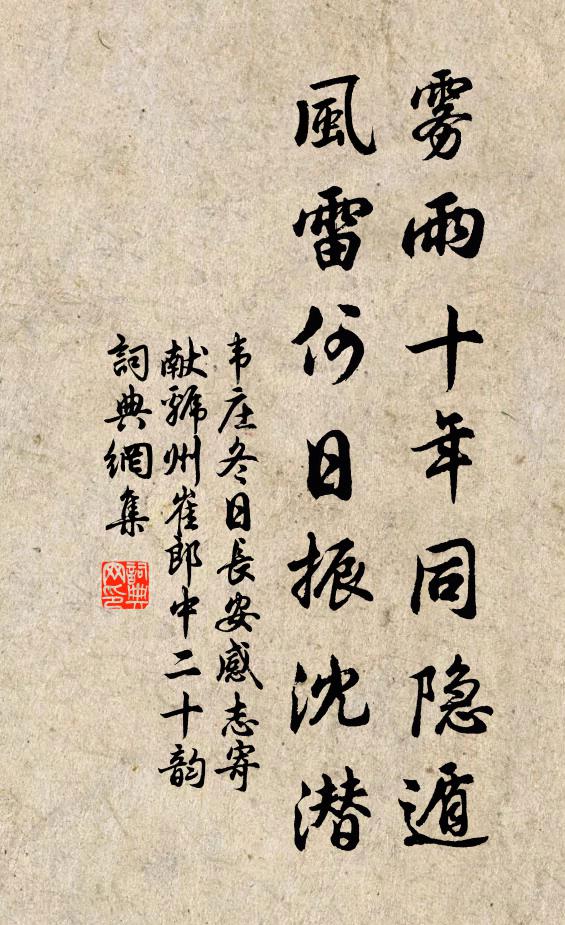 雾雨十年同隐遁
風雷何日振沈潜
韦庄冬日長安感志寄
献虢州崔郎中二十韵
詞典網集
詞典
网印